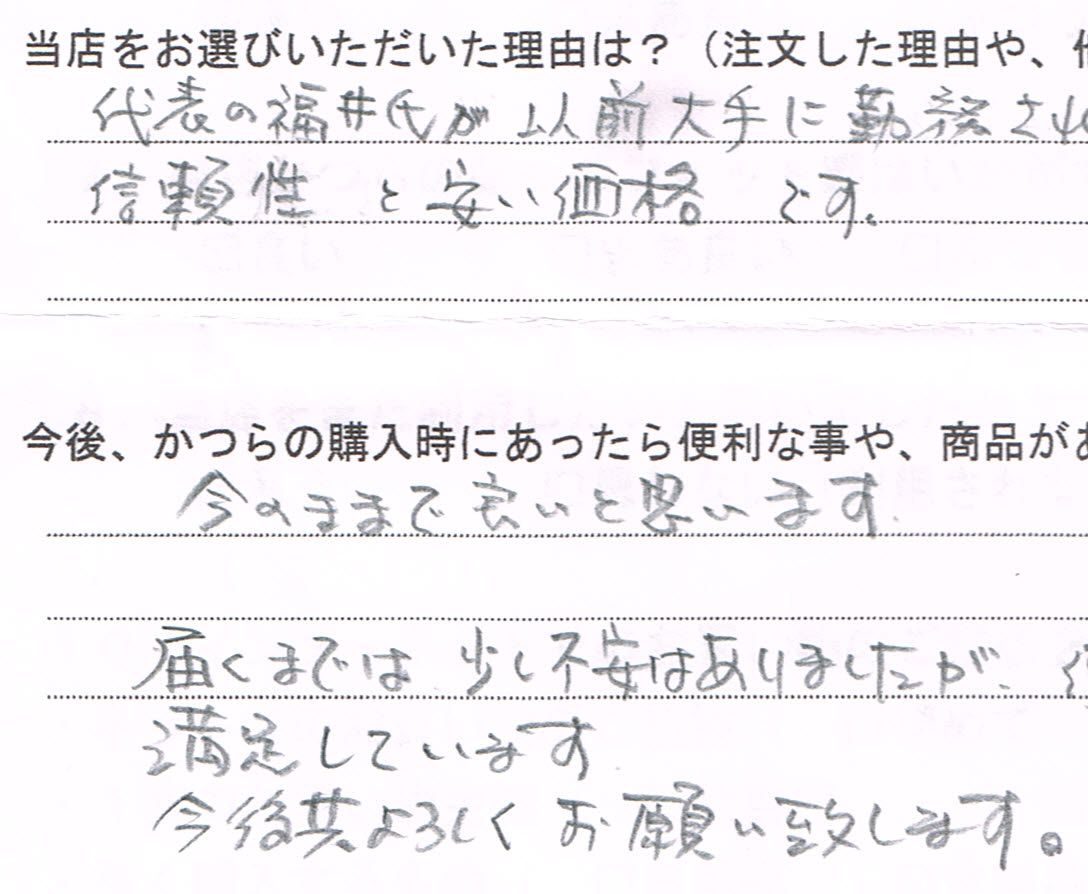 当店をお選びいただいた理由は？（注文した理由や、
代表の福井氏が以前大手に勤務され
信頼性と安い価格です。
今後、かつらの購入時にあったら便利な事や、商品があ
今のままで良いと思います
届くまでは少し不安はありましたが、
満足しています
今後共よろしくお願い致します。